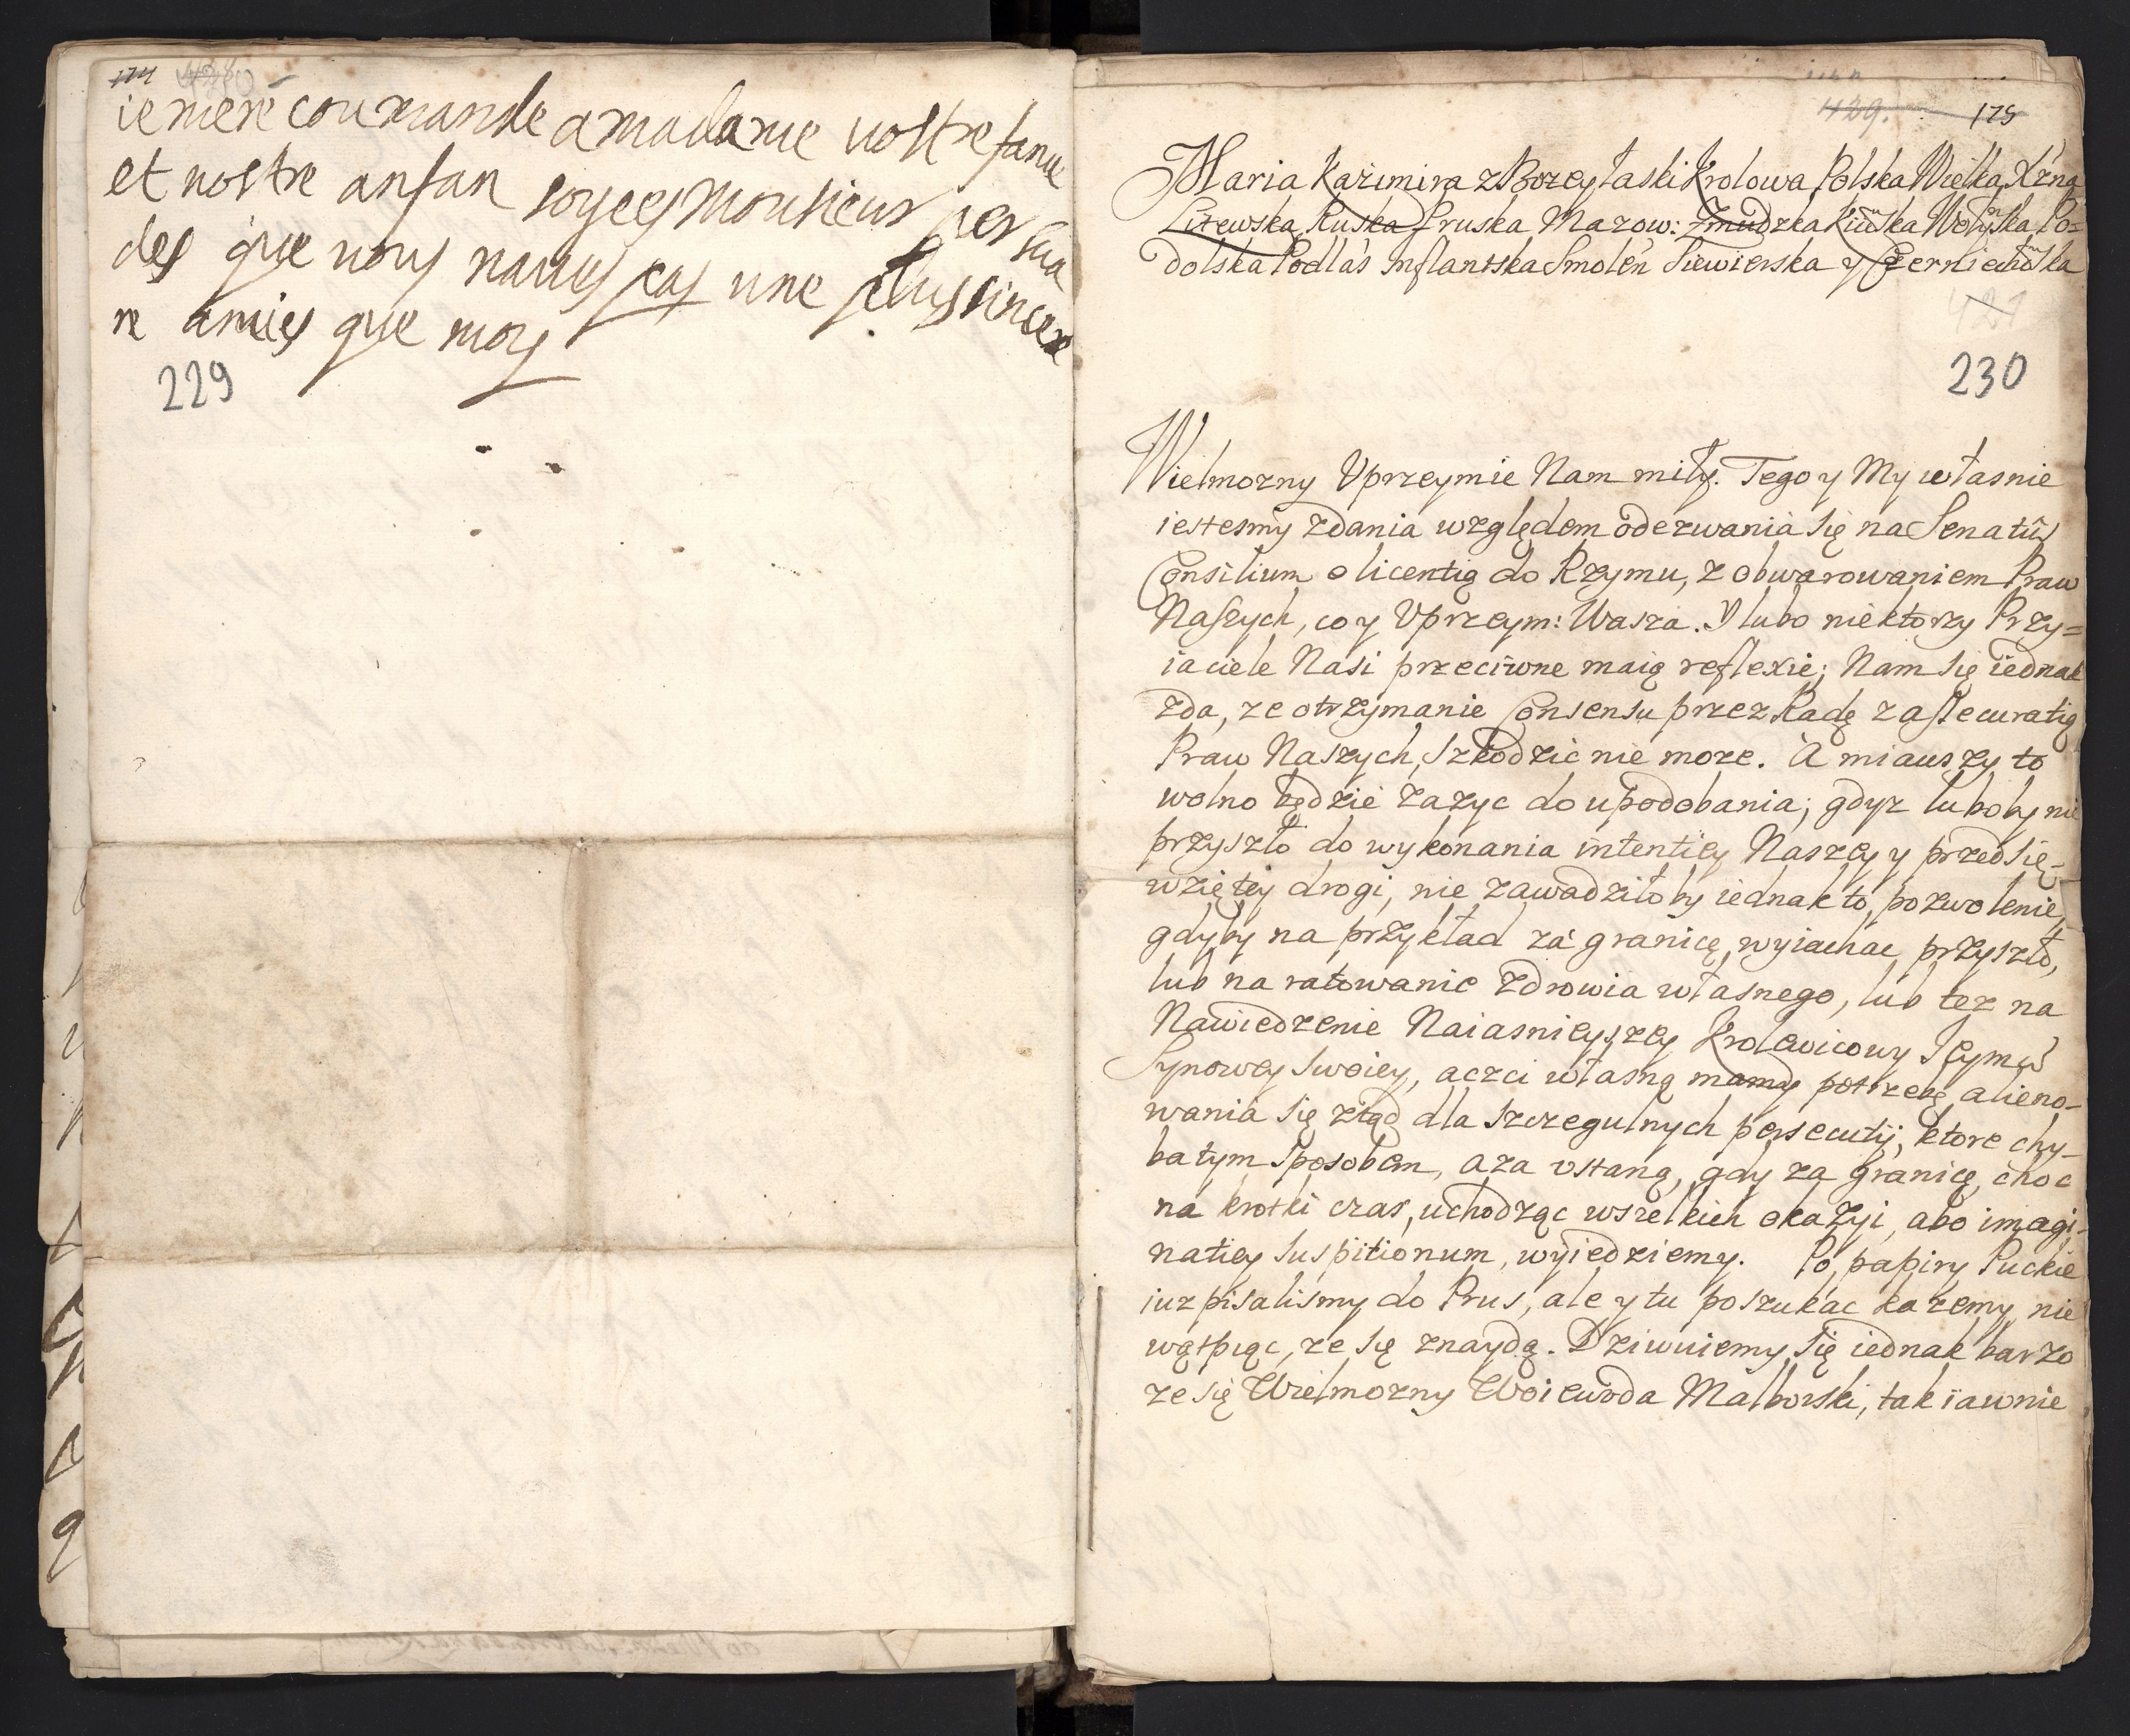 174
ie mere coumande a madame vostre fame
et nostre anfan soyees Monsieur persua
des que vous naues pas une plus sincere
re amies que moy
229
429. 175
Maria Kazimira z Bozey łaski Krolowa Polska Wielka Xźna
Litewska Ruska Pruska Mazow: Zmudzka Kiiowska Wołynska Po=
dolska Podlas Inflantska Smolen Siewierska y Czerniechowska
421
230
Wielmozny Vprzeymie Nam miły. Tego y My własnie
iestesmy zdania względem odezwania się na Senatûs
Consilium o licentią do Rzymu, z obwarowaniem Praw
Naszych, co y Vprzeym: Wasza. Y lubo niektorzy Przy=
iaciele Nasi przeciwne maią reflexie; Nam się iednak
zda, ze otrzymanie Consensu przez Radę z assecuratią
Praw Naszych, szkodzic nie moze. A miawszy to
wolno będzie zazyc do upodobania; gdyz luboby nie
przyszło do wykonania intentiey Naszey y przedsię-
wziętey drogi, nie zawadziłoby iednak to pozwolenie,
gdyby na przykład za granicę wyiachac przyszło,
lub na ratowanie zdrowia własnego, lub tez na
Nawiedzenie Naiasnieyszey Krolewicowy Ieymsci
Synowey swoiey, aczci własną mamy potrzebę alieno-
wania się ztąd dla szczegulnych persecutij, ktore chy-
ba tym sposobem, aza ustaną, gdy za granicę, choc
na krotki czas, uchodząc wszelkich okazyi, abo imagi-
natiey suspitionum, wyiedziemy. Po papiry Puckie
iuz pisalismy do Prus, ale y tu poszukac kazemy, nie
wątpiąc, ze się znaydą. Dziwuiemy się iednak barzo
ze się Wielmozny Woiewoda Malborski, tak iawnie